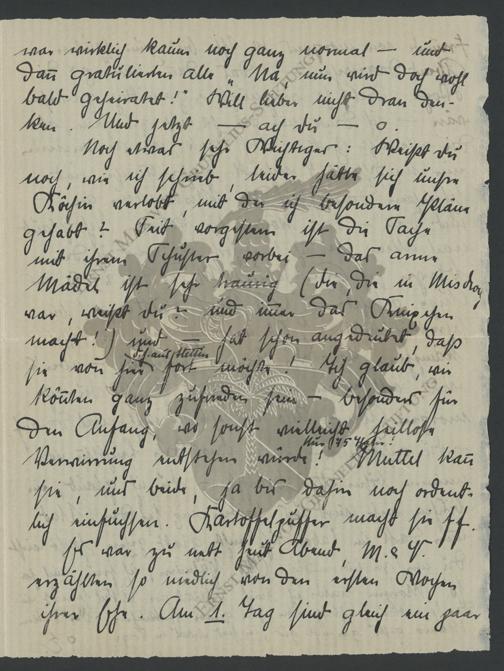 war wirklich kaum noch ganz normal — und
dann gratulierten alle „Na, nun wird doch wohl
bald geheiratet!“ Will lieber nicht dran den-
ken. Und jetzt — ach du — o.
Noch etwas sehr Wichtiges: Weißt du
noch, wie ich schrieb, leider hätte sich unsre
Köchin verlobt, mit der ich besondere Pläne
gehabt? Seit vorgestern ist die Sache
mit ihrem Schuster vorbei — das arme
Mädel ist sehr traurig (die, die in Misdroy
war, weißt du? und immer das Knipschen
macht!) und — hat schon angedeutet, daß
sie von hier fort möchte! Ich glaub, wir
d.h. aus Stettin
könnten ganz zufrieden sein — besonders für
den Anfang, wo sonst vielleicht heillose
Verwirrung entstehen würde! Muttel kann
Nur 45 M
sie, uns beide, ja bis dahin noch ordent-
lich einfuchsen. Kartoffelpuffer macht sie ff.
Es war zu nett heut Abend, M. & V.
erzählten so niedlich von den ersten Wochen
ihrer Ehe. Am 1. Tag sind gleich ein paar
ERNST
STIFTUNG